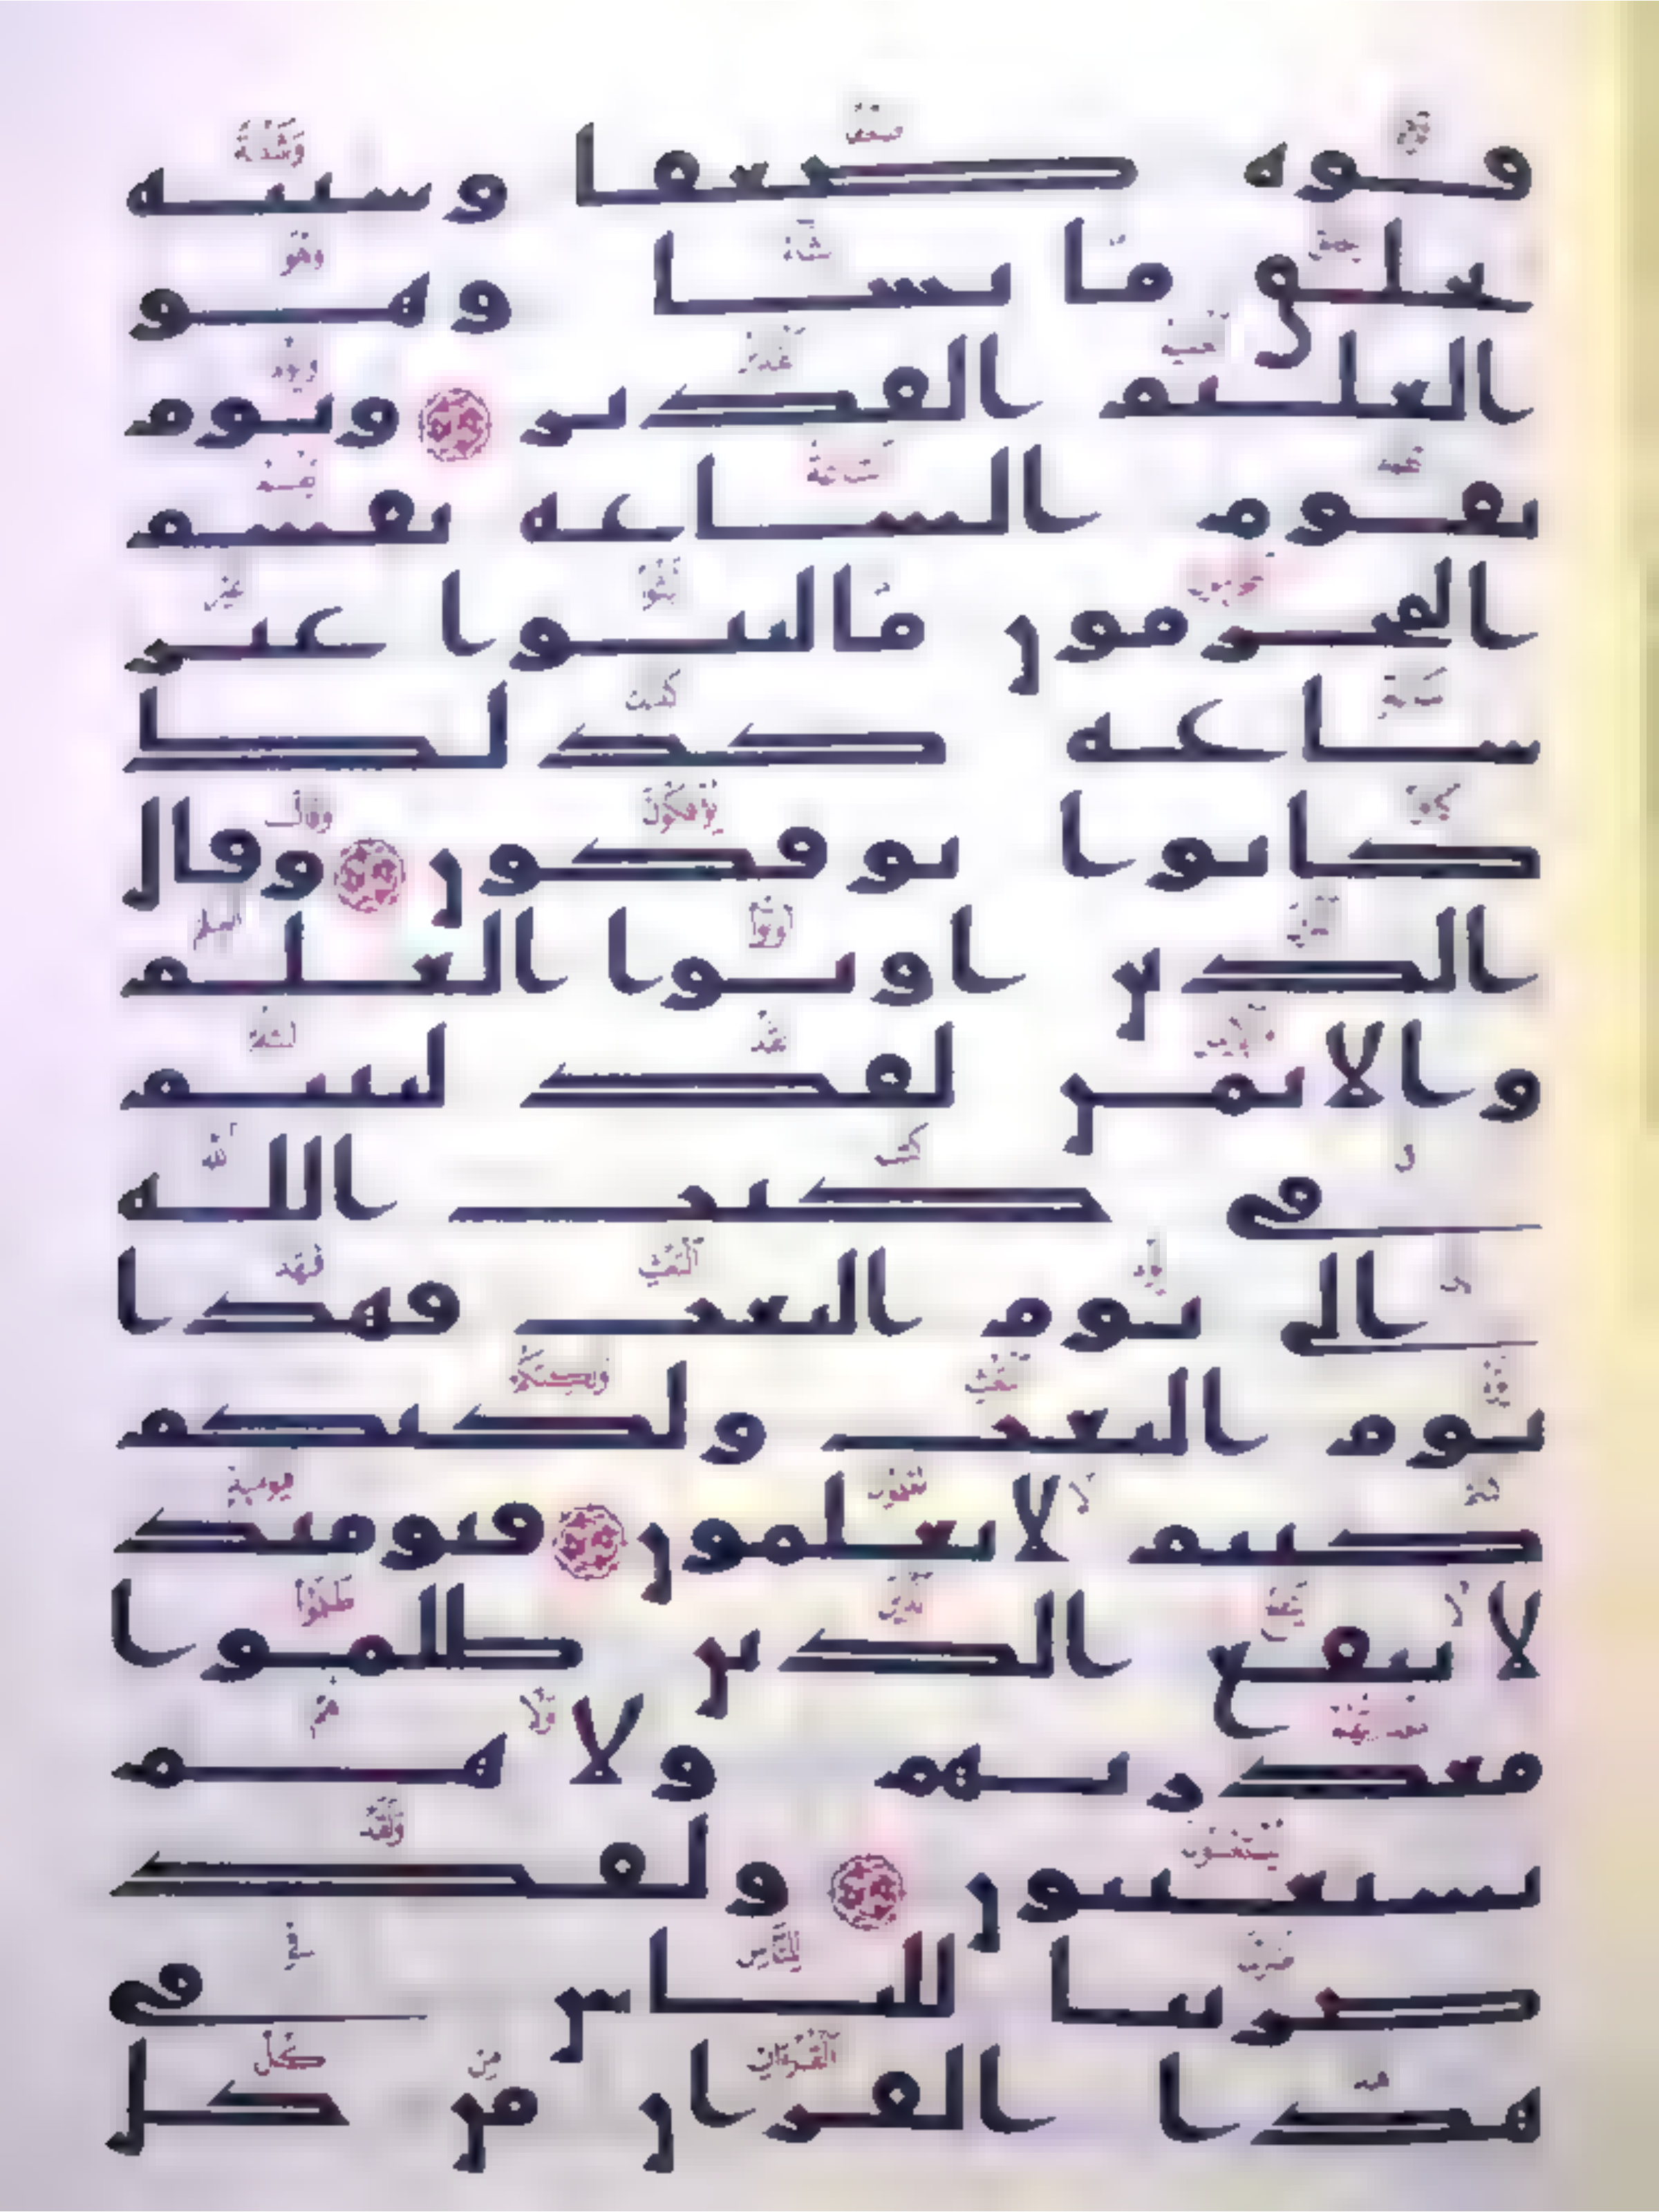 قوة ضعفا وشيبة
يخلق ما يشا وهو
العليم القدير ويوم
تقوم الساعة يقسم
المجرمون ما لبثوا غير
ساعة كذلك
كانوا يوفكون وقال
الذين اوتوا العلم
والايمن لقد لبثتم
في كتب الله
الى يوم البعث فهذا
يوم البعث ولكنكم
كنتم لا تعلمون فيومئذ
لا ينفع الذين ظلموا
معذرتهم ولا هم
يستعتبون ولقد
ضربنا للناس في
هذا القران من كل